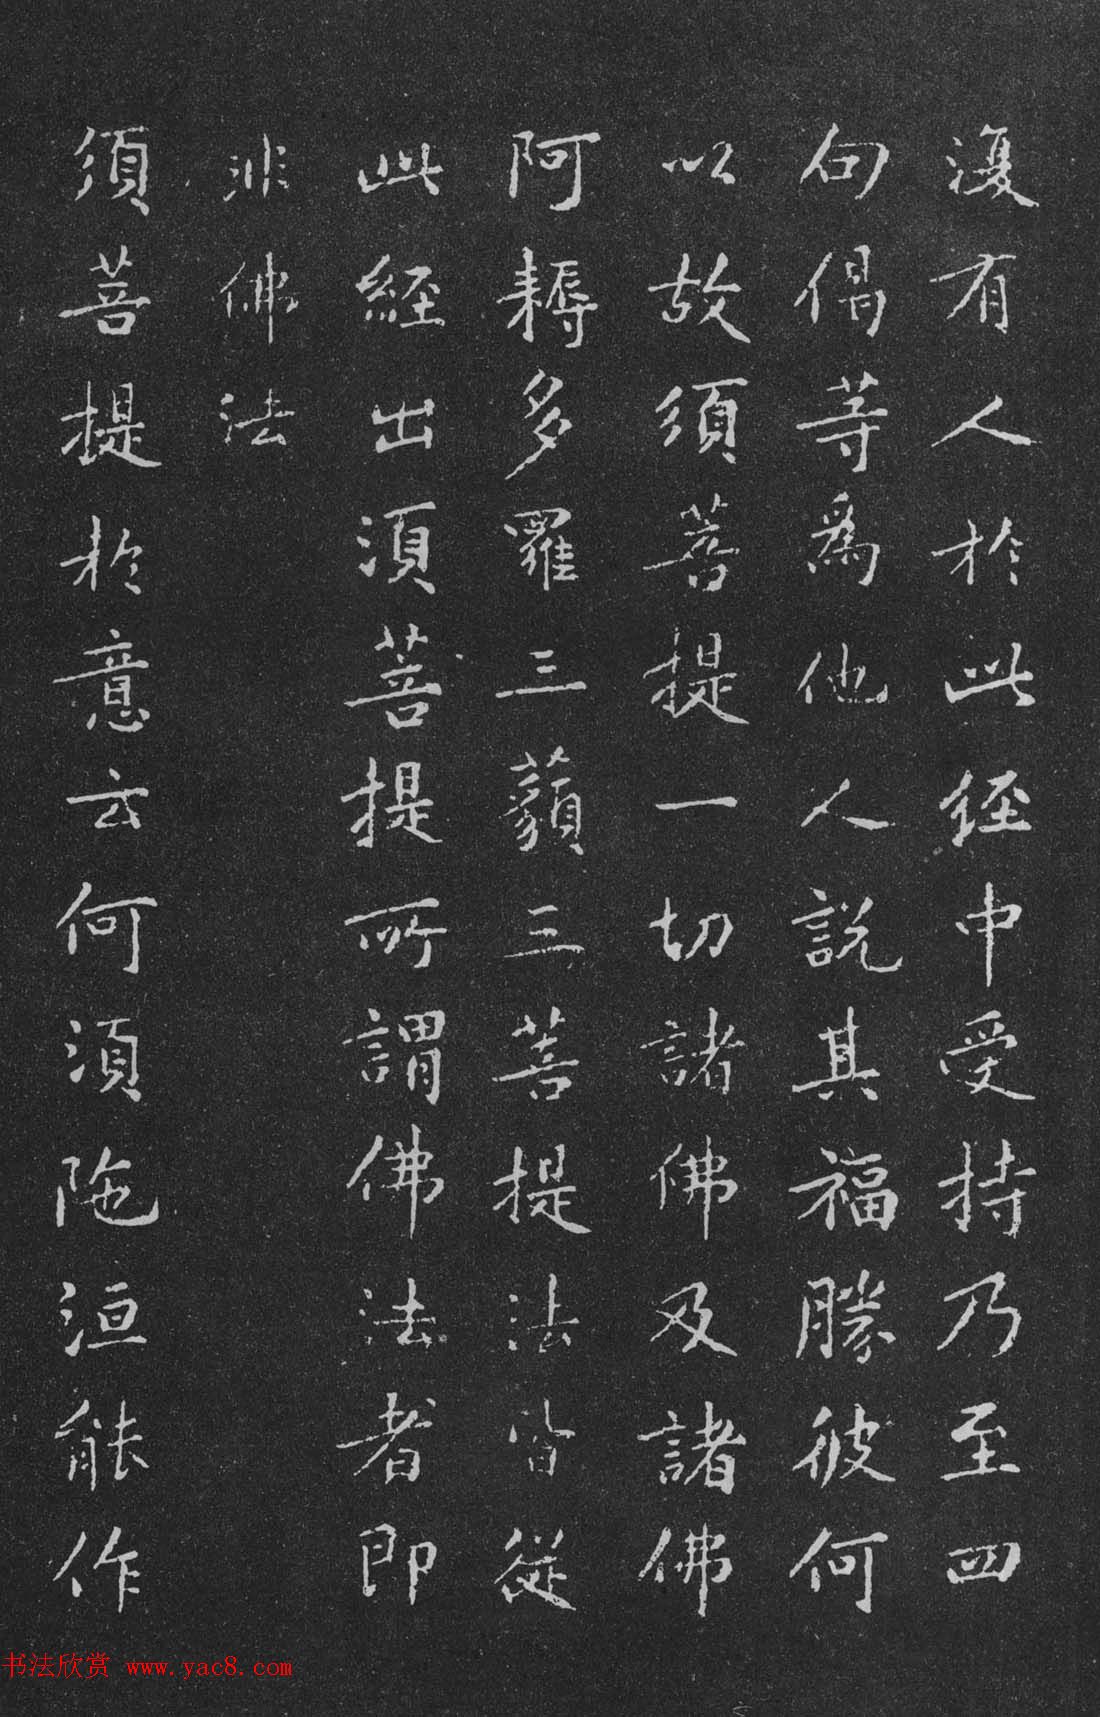 復有人於此経中受持乃至四
句偈等為他人說其福勝彼何
以故須菩提一切諸佛及諸佛
阿耨多羅三藐三菩提法皆從
此經出須菩提所謂佛法者即
非佛法
須菩提於意云何須陁洹能作
书法欣赏 www.yac8.com